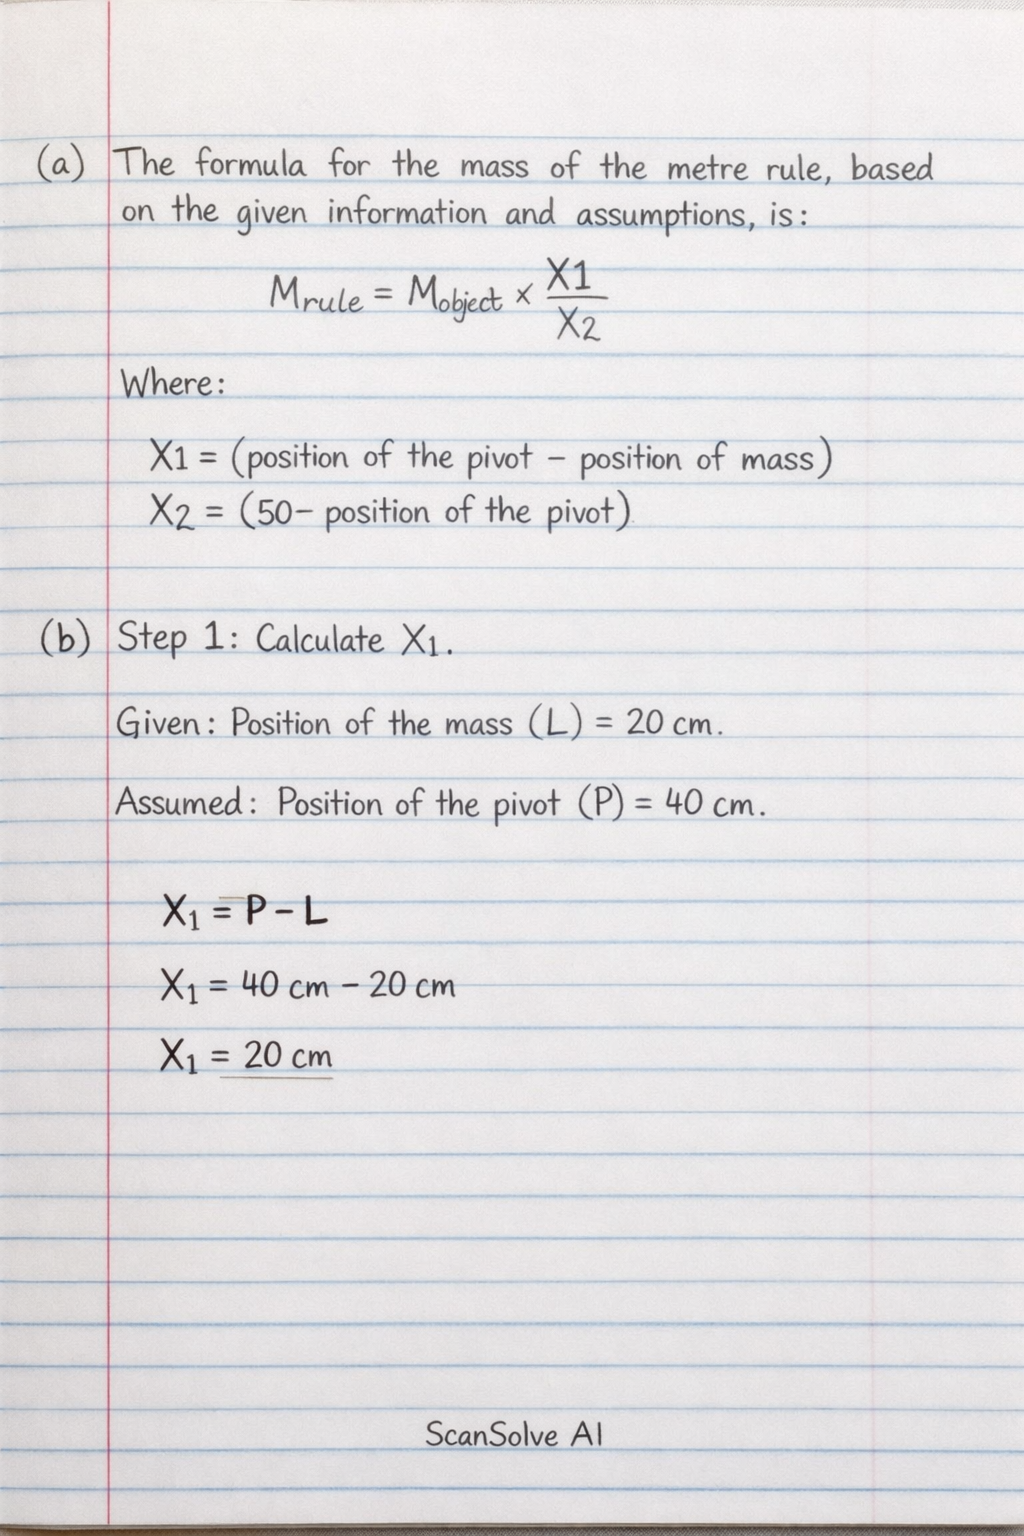 (a) The formula for the mass of the metre rule, based
on the given information and assumptions, is:
Mrule = Mobject × X1/X2
Where:
X1 = (position of the pivot – position of mass)
X2 = (50– position of the pivot)
(b) Step 1: Calculate X₁.
Given: Position of the mass (L) = 20 cm.
Assumed: Position of the pivot (P) = 40 cm.
X₁ = P – L
X₁ = 40 cm – 20 cm
X₁ = 20 cm
ScanSolve AI